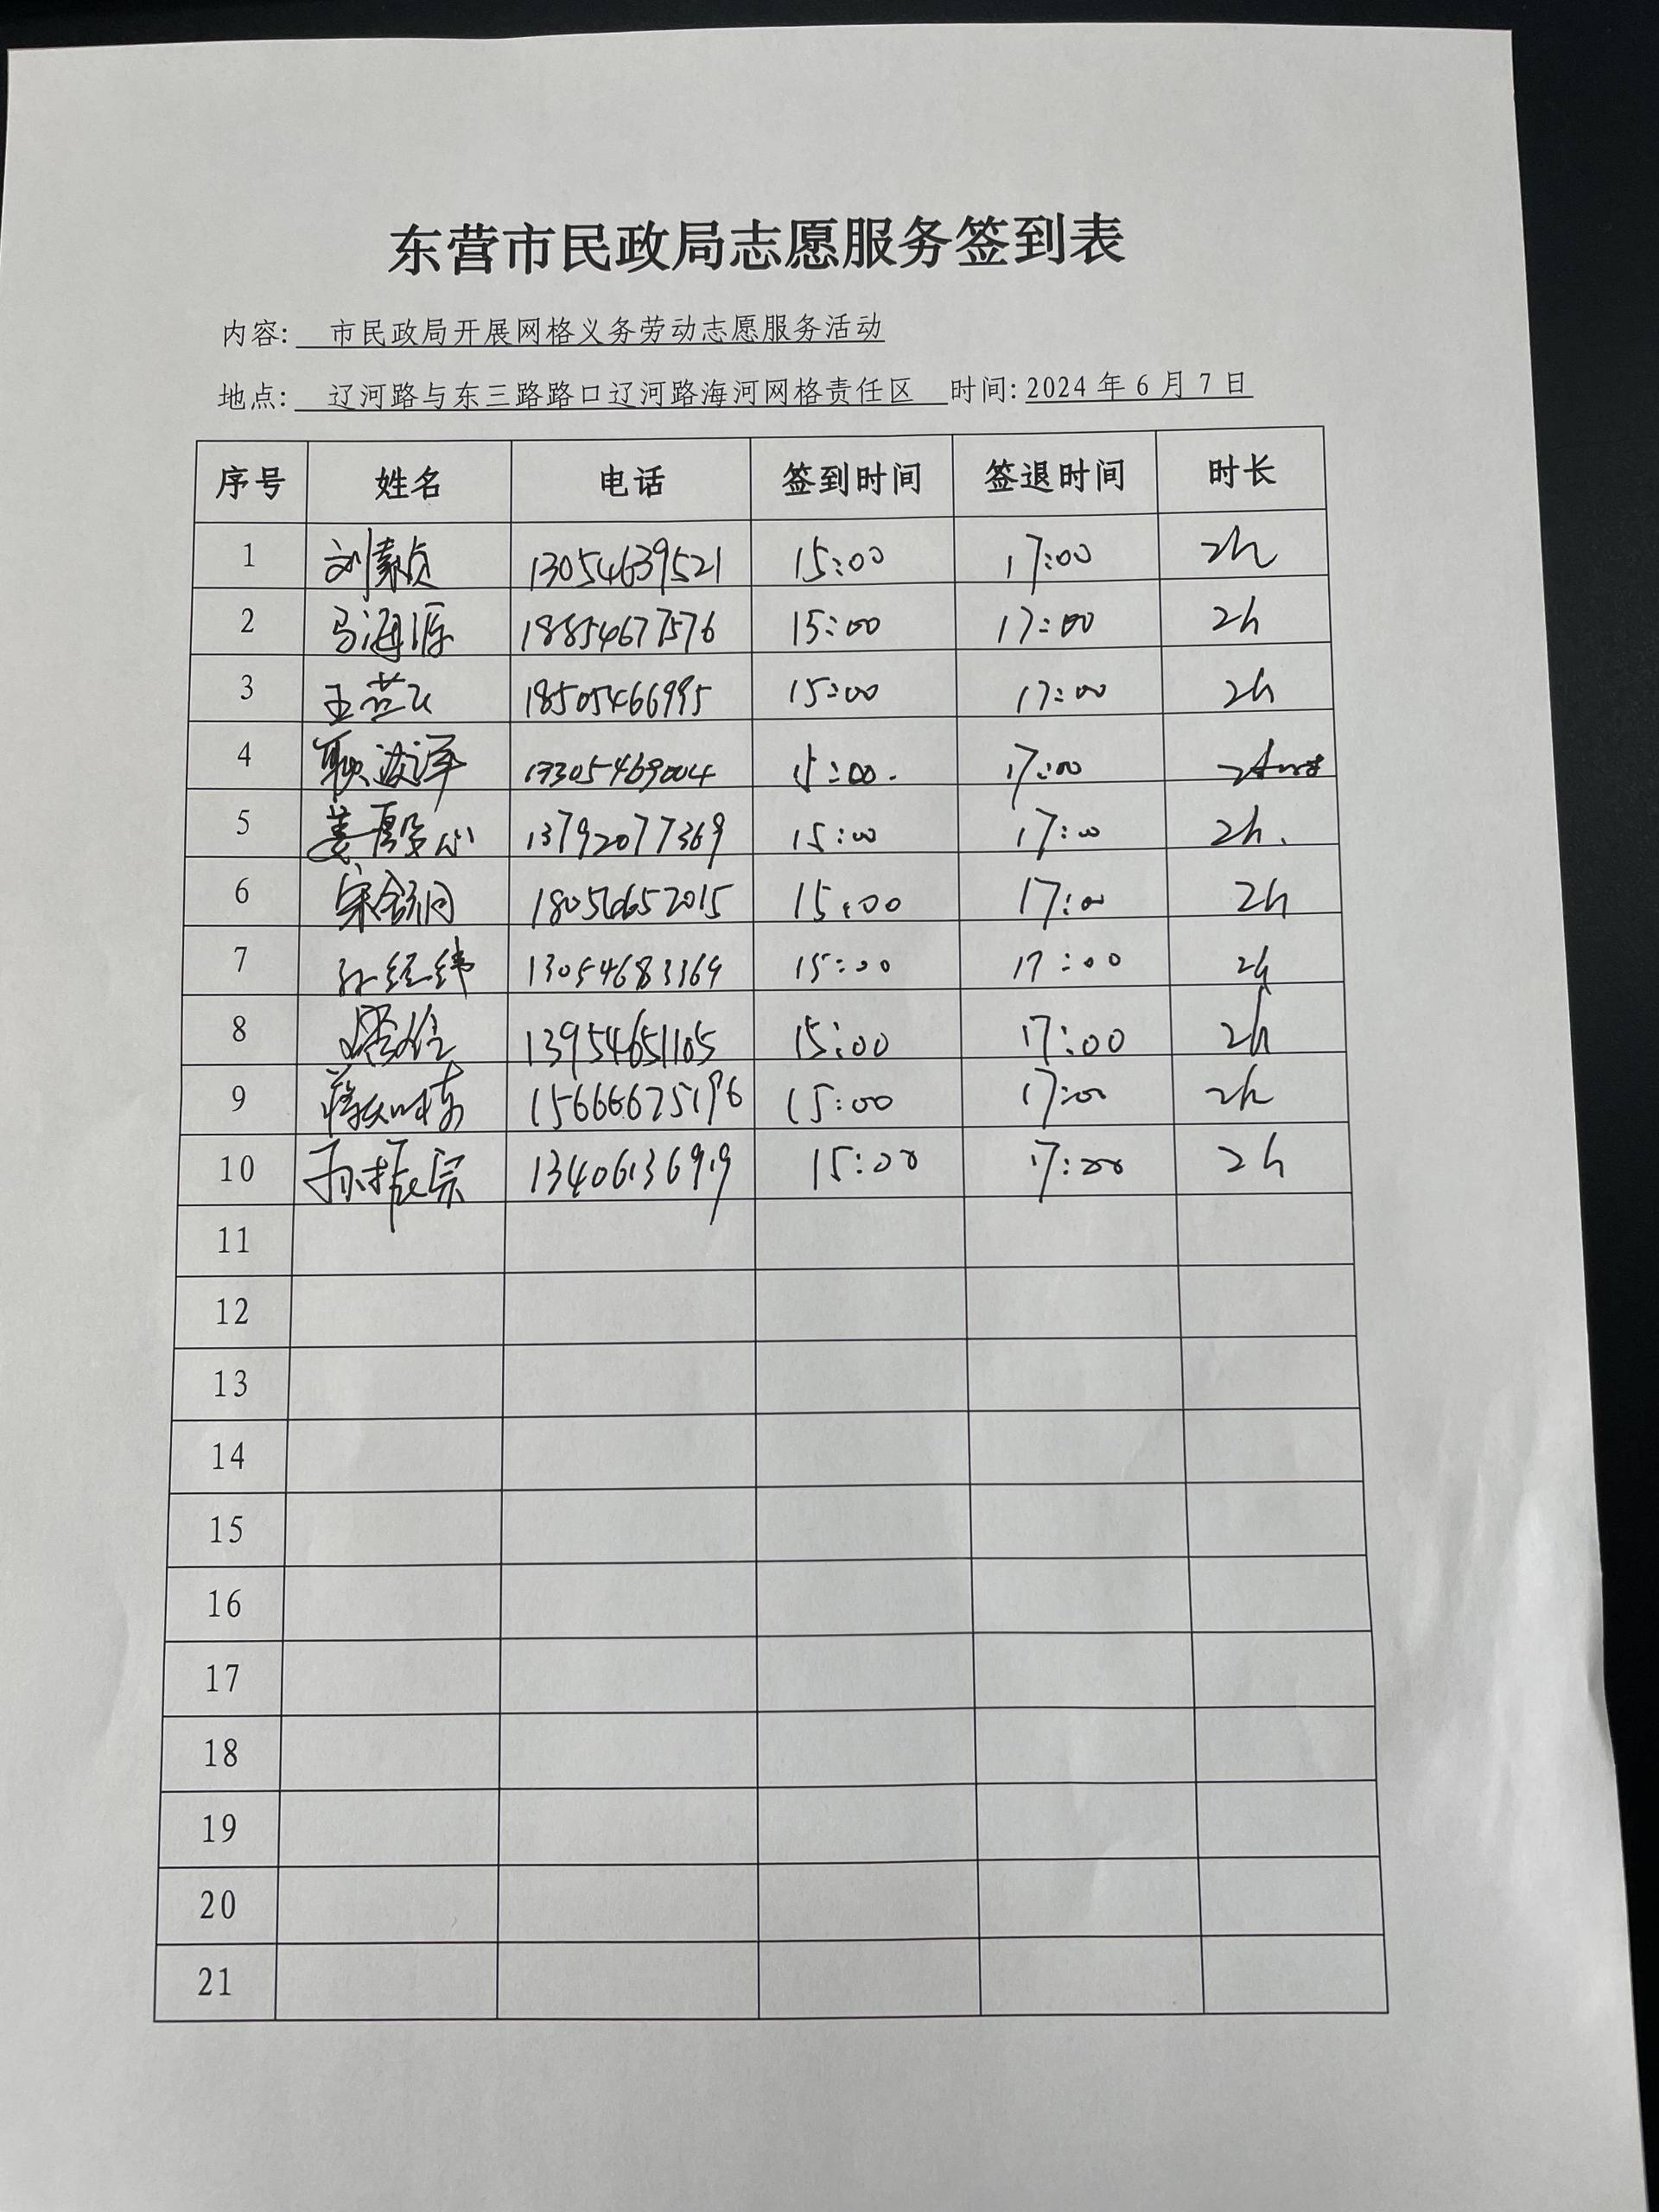 东营市民政局志愿服务签到表
内容: 市民政局开展网格义务劳动志愿服务活动
地点: 辽河路与东三路路口辽河路海河网格责任区 时间: 2024 年 6 月 7 日
序号 姓名 电话 签到时间 签退时间 时长
1 刘素贞 13054639521 15:00 17:00 2h
2 马海滨 18854677576 15:00 17:00 2h
3 王芸飞 18505466995 15:00 17:00 2h
4 耿波泽 15:00. 17:00
5 姜殿心 13792077369 15:00 17:00 2h.
6 宋 15:00 17:00 2h
7 孙经纬 13054683369 15:00 17:00 2h
8 13954651105 15:00 17:00 2h
9 15666675196 15:00 17:00 2h
10 孙振宗 13406136919 15:00 17:00 2h
11
12
13
14
15
16
17
18
19
20
21